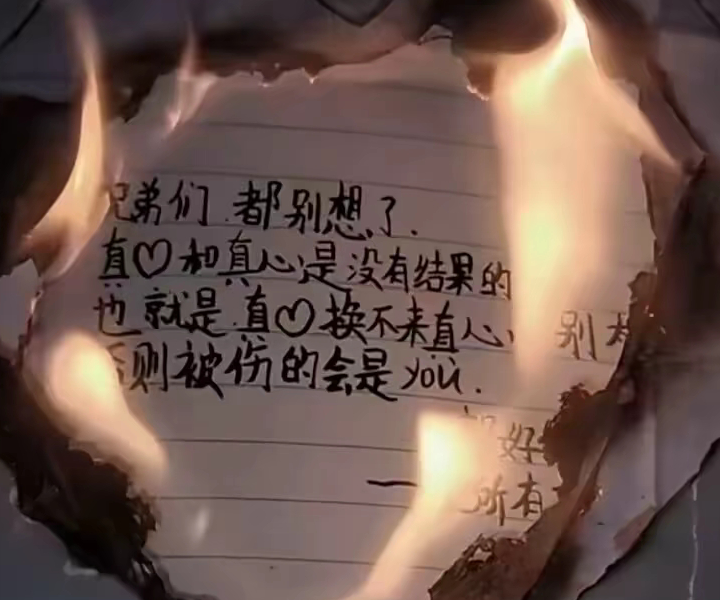 兄弟们 都别想了.
真♡和真心是没有结果的
也就是真♡换不来真心, 别
否则被伤的会是you.
好
—所有